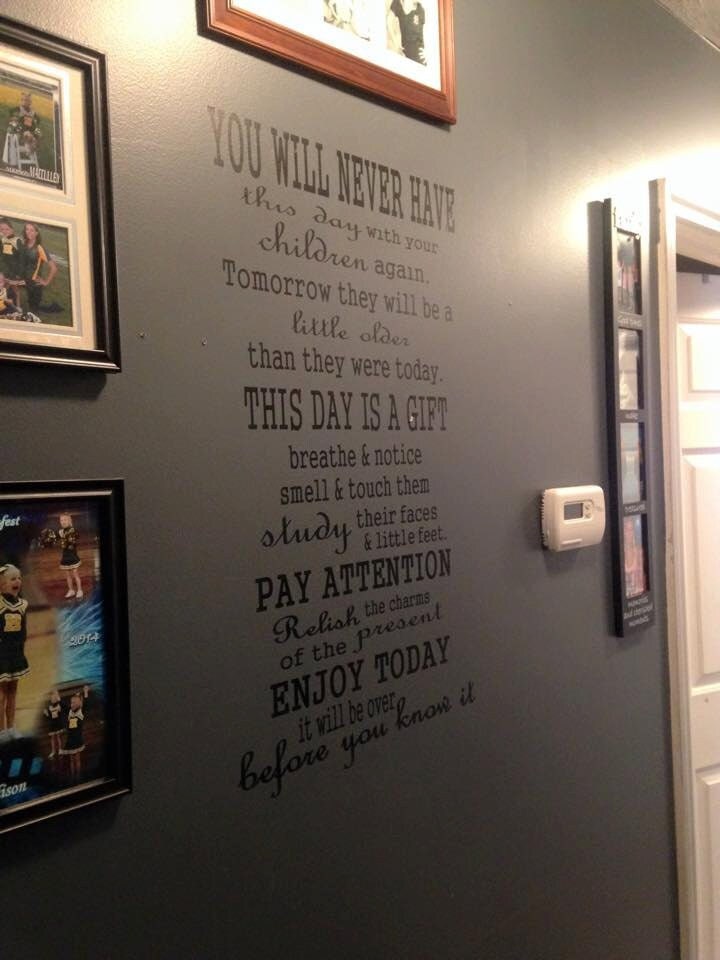 YOU WILL NEVER HAVE
this day with your
children again.
Tomorrow they will be a
little older
than they were today.
THIS DAY IS A GIFT
breathe & notice
smell & touch them
study their faces
& little feet.
PAY ATTENTION
Relish the charms
of the present
ENJOY TODAY
it will be over
before you know it
fest
2014
ison